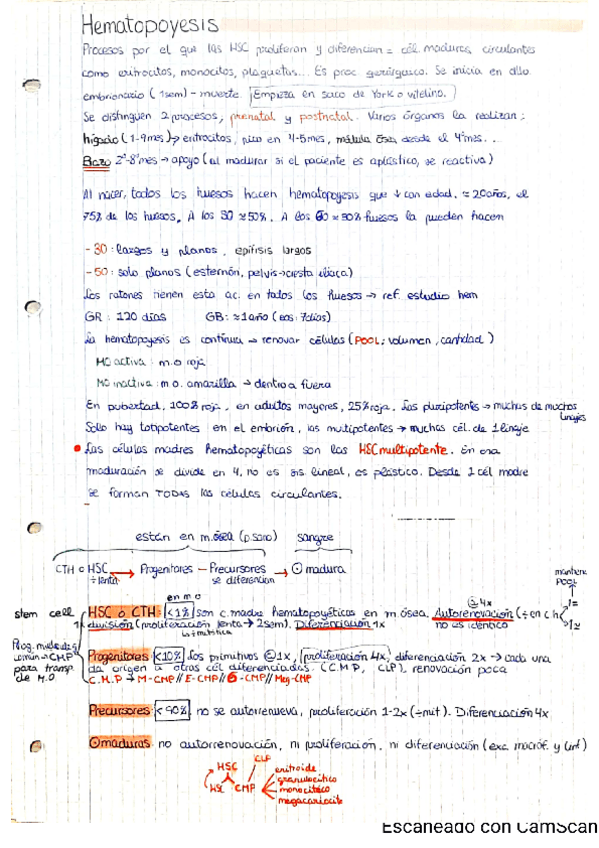 Hematopoyesis
Procesos por el que las HSC proliferan y diferencian = cél. maduras, circulantes
como eritrocitos, monocitos, plaquetas... Es proc. jerárquico. Se inicia en dllo
embrionario (1sem) - muerte. Empieza en saco de York o vitelino.
Se distinguen 2 procesos, prenatal y postnatal. Varios órganos la realizan:
hígado (1-9mes) → eritrocitos, pico en 4-5mes, médula ósea desde el 4ºmes...
Bazo 2º-8ºmes → apoyo (al madurar si el paciente es aplástico, se reactiva)
Al nacer, todos los huesos hacen hematopoyesis que ↓ con edad. ≈ 20años, el
75% de los huesos. A los 30 ≈50%. A los 60 ≈ 30% huesos la pueden hacen
- 30: largos y planos, epífisis largos
- 50: solo planos (esternón, pelvis→cresta ilíaca)
Los ratones tienen esta ac. en todos los huesos → ref. estudio hem
GR: 120 días GB: ≈1año (eos: 7días)
La hematopoyesis es continua → renovar células (POOL: volumen, cantidad)
MO activa: m.o roja
MO inactiva: m o. amarilla → dentro a fuera
En pubertad, 100% roja, en adultos mayores, 25% roja. Las pluripotentes → muchas de muchos linajes
Solo hay totipotentes en el embrión, las multipotentes → muchas cél. de 1 linaje
• Las células madres hematopoyéticas son las HSC multipotente. En esa
maduración se divide en 4, no es sis. lineal, es plástico. Desde 1 cél madre
se forman TODAS las células circulantes.
están en m.ósea (p.sano) sangre
CTH o HSC → Progenitores — Precursores → madura
÷lenta se diferencian
mantiene POOL
en m o
stem cell HSC o CTH <1% son c. madre hematopoyéticas en m ósea. Autorenovación (÷ en c h
4x
1=
1≈
1x división (proliferación lenta → 2sem). Diferenciación 1x no es idéntico
Progenitores <10% los primitivos 1x, proliferación 4x, diferenciación 2x → cada una
da origen a otras cél diferenciadas. (C.M.P, CLP), renovación poca
C.M.P → M-CMP // E-CMP // G-CMP // Meg-CMP
común → CMP
para transp.
de M.O
Precursores <90% no se autorrenueva, proliferación 1-2x (÷mit). Diferenciación 4x
maduras no autorrenovación, ni proliferación, ni diferenciación (exc. macróf. y linf)
HSC CLP
HSC CMP
eritroide
granulocítico
monocítico
megacariocito
Escaneado con CamScan